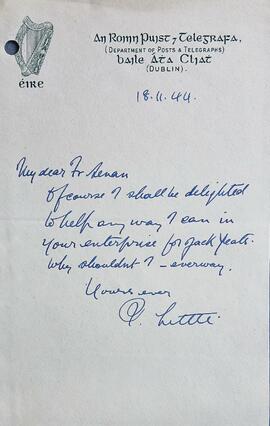 An Roinn Puist ⁊ Telegrafa,
(DEPARTMENT OF POSTS & TELEGRAPHS)
baile Áta Cliat
(DUBLIN).
éire
18.11.44.
My dear Fr Senan
Of course I shall be delighted
to help any way I can in
your enterprise for Jack Yeats.
Why shouldn't I –
Yours ever
P. Little